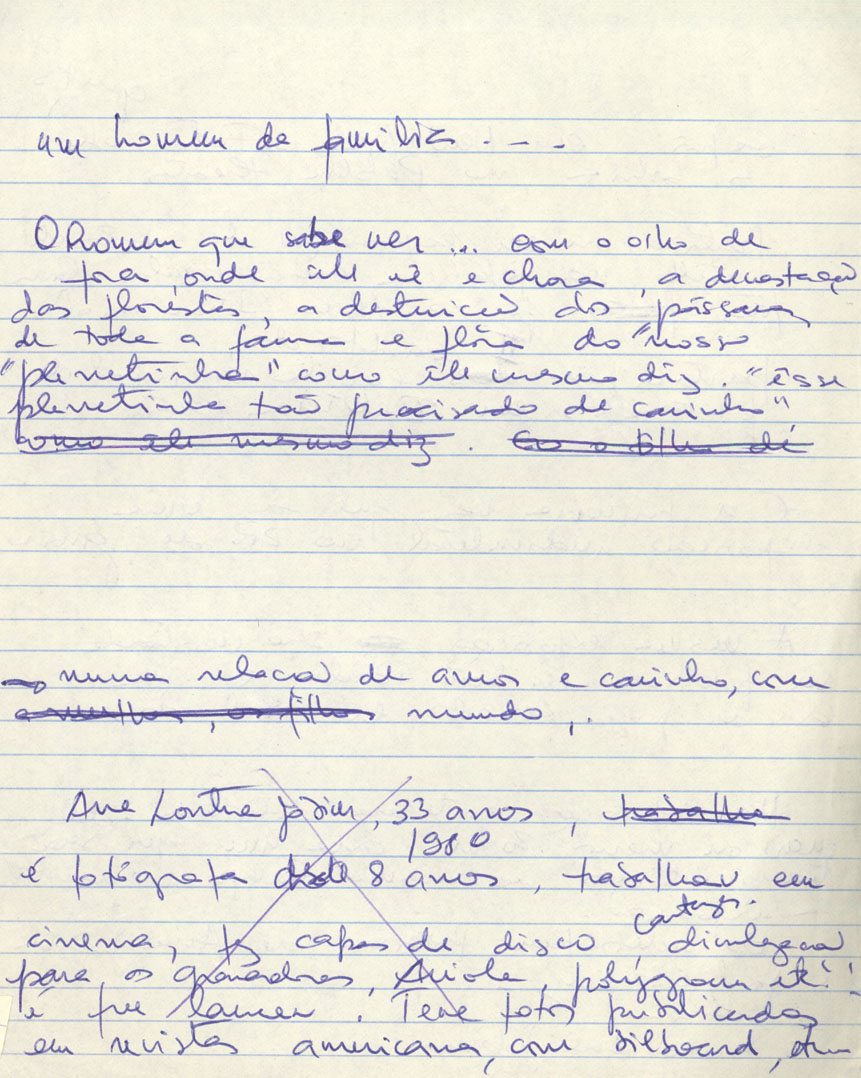 um homem de familia . - -
O homem que sabe ver ... com o olho de
fora, onde ele vê e chora, a devastação
das florestas, a destruição dos pássaros,
de toda a fauna e flóra do "nosso
"planetinha" como ele mesmo diz. "êsse
planetinha tão precisado de carinho"
como ele mesmo diz . o filho de
numa relação de amor e carinho, com
a mulher, os filhos mundo,.
Ana Lontra Jobim, 33 anos, trabalha
1980
é fotógrafa desde 8 anos, trabalhou em
cartazes.
cinema, fez capas de disco, divulgação
para os gravadoras, Ariola, polygram etc.
é free lancer. Teve fotos publicadas
em revistas americana, com Bilboard,